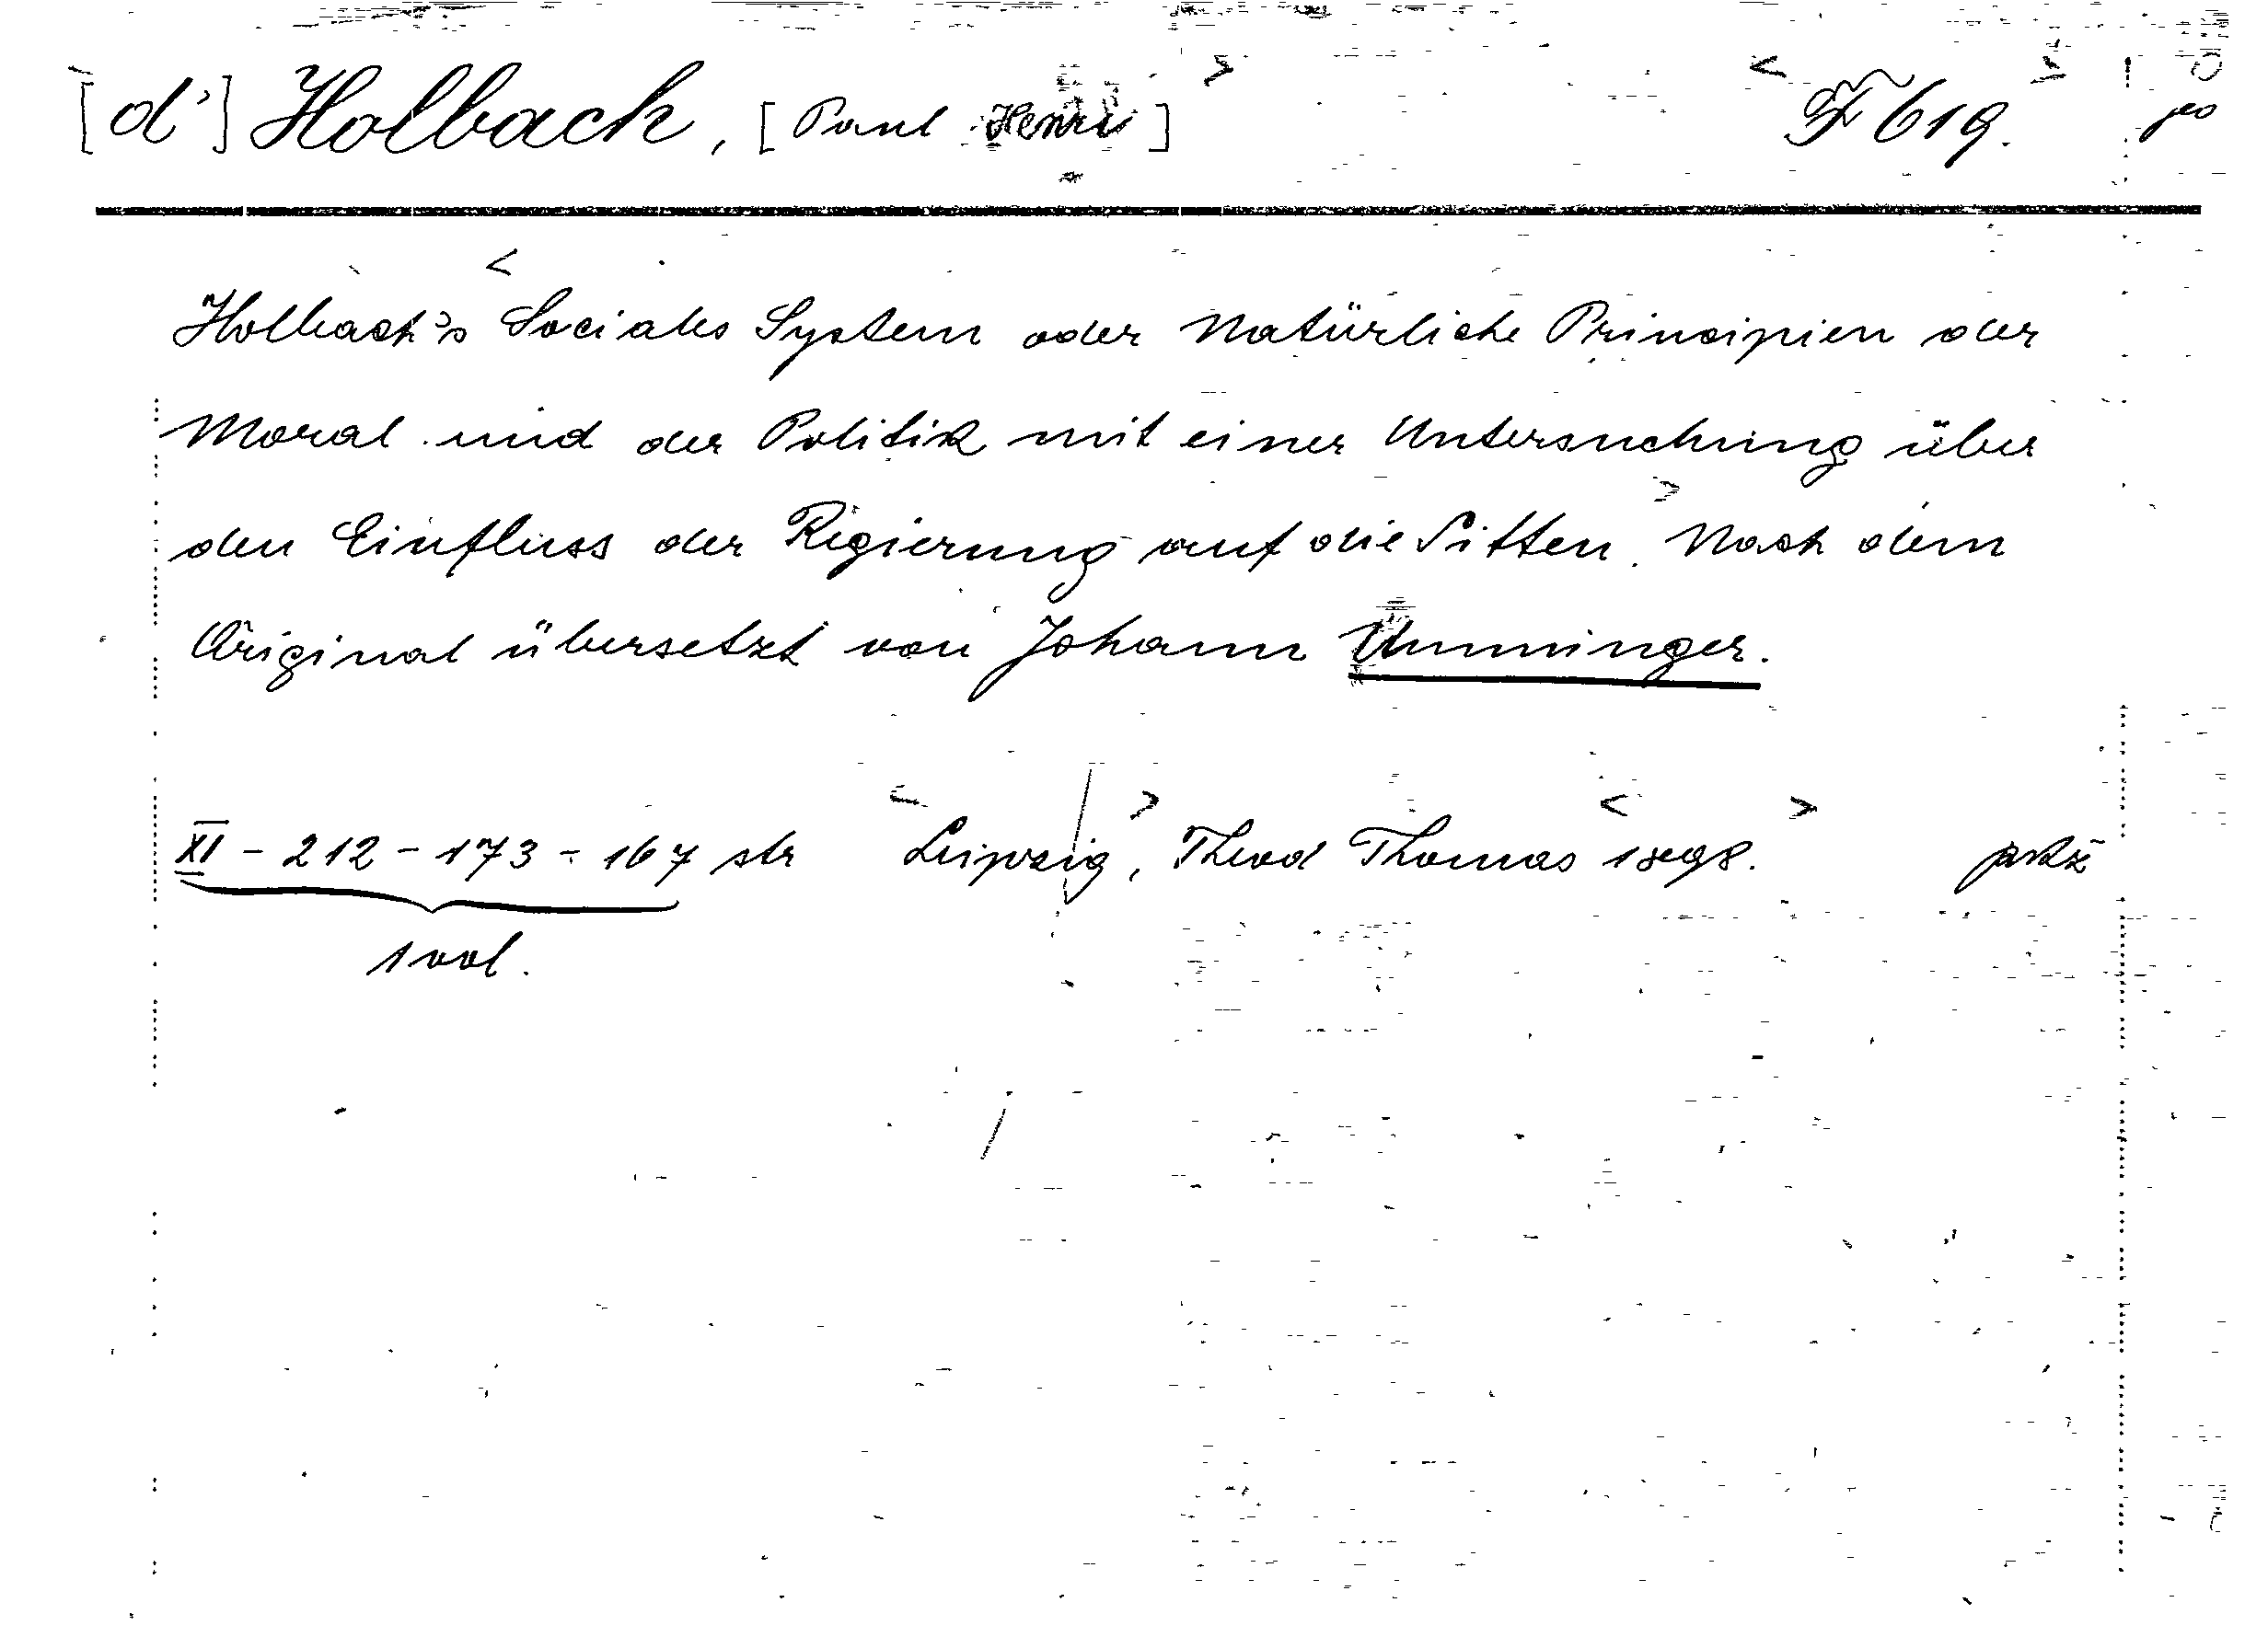 [d'] Holbach, [Paul Henri] F 619.
Holbach's Sociales System oder Natürliche Principien der
Moral und der Politik mit einer Untersuchung über
den Einfluss der Regierung auf die Sitten. Nach dem
Original übersetzt von Johann Umminger.
XI - 212 - 173 - 167 str Leipzig, Theod Thomas 1898.
1 vol.